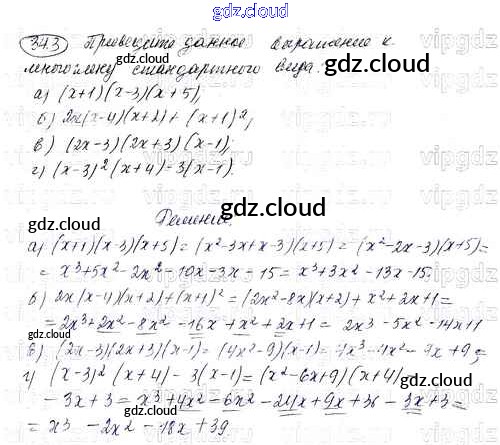 gdz.cloud
343 Приведите данное выражение к
многочлену стандартного вида:
gdz.cloud
а) (x+1)(x-3)(x+5);
б) 2x(x-4)(x+2) + (x+1)²;
в) (2x-3)(2x+3)(x-1);
г) (x-3)²(x+4)-3(x-1).
gdz.cloud
Решение:
gdz.cloud
а) (x+1)(x-3)(x+5) = (x²-3x+x-3)(x+5) = (x²-2x-3)(x+5) =
= x³+5x²-2x²-10x-3x-15 = x³+3x²-13x-15.
б) 2x(x-4)(x+2)+(x+1)² = (2x²-8x)(x+2)+x²+2x+1 =
= 2x³+2x²-8x²-16x+x²+2x+1 = 2x³-5x²-14x+1
в) (2x-3)(2x+3)(x-1) = (4x²-9)(x-1) = 4x³-4x²-9x+9;
г) (x-3)²(x+4)-3(x-1) = (x²-6x+9)(x+4)-
-3x+3 = x³+4x²-6x²-24x+9x+36-3x+3 =
= x³-2x²-18x+39
gdz.cloud